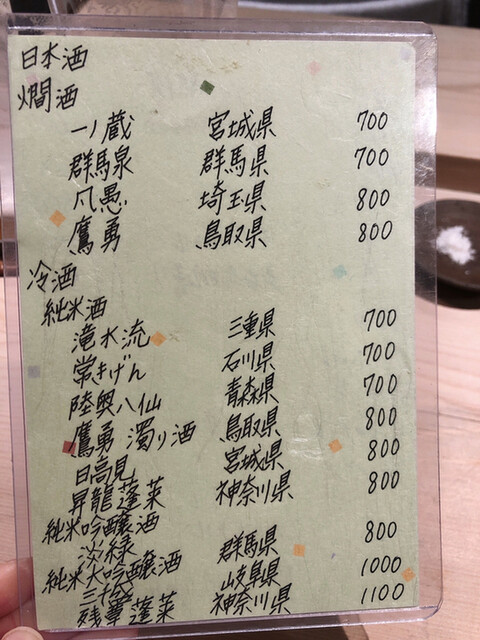 日本酒
燗酒
一ノ蔵 宮城県 700
群馬泉 群馬県 700
凡愚 埼玉県 800
鷹勇 鳥取県 800
冷酒
純米酒
滝水流 三重県 700
常きげん 石川県 700
陸奥八仙 青森県 700
鷹勇 濁り酒 鳥取県 800
日高見 宮城県 800
昇龍蓬莱 神奈川県 800
純米吟醸酒
淡緑 群馬県 800
純米大吟醸酒
三千盛 岐阜県 1000
残草蓬莱 神奈川県 1100